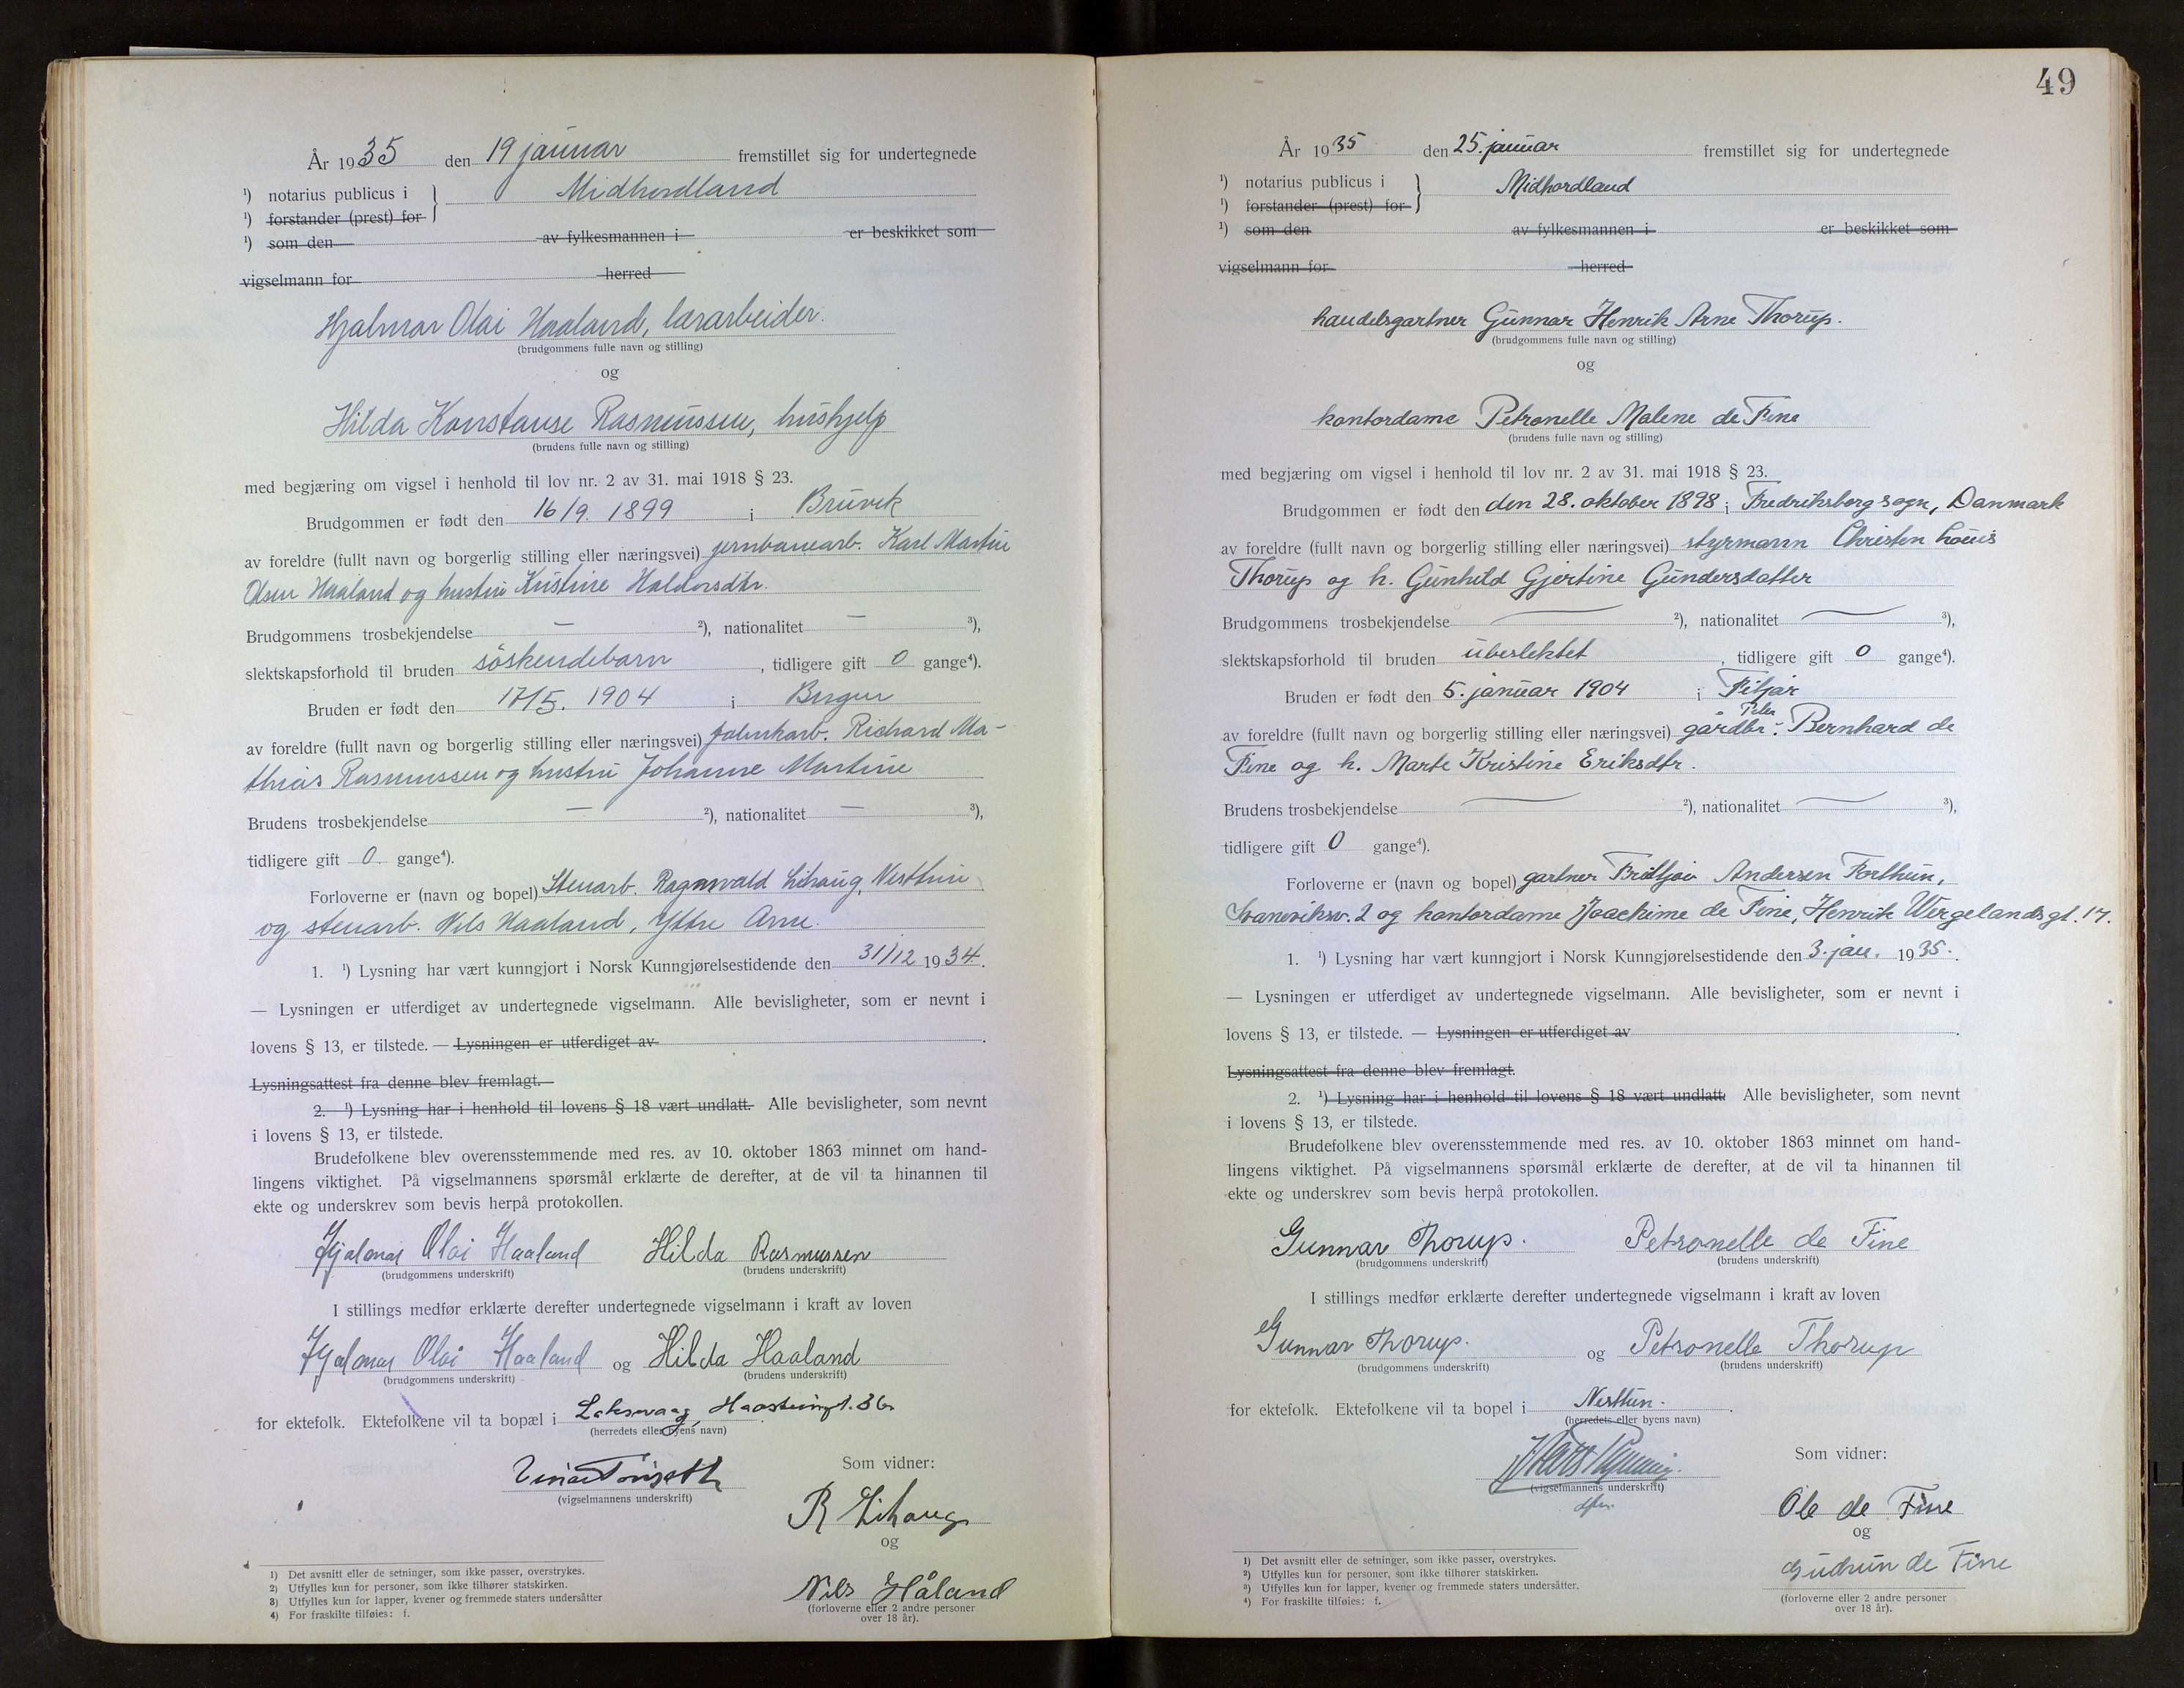 År 1935 den 19 januar fremstillet sig for undertegnede
¹) notarius publicus i } Midhordland
¹) forstander (prest) for
¹) som den av fylkesmannen i er beskikket som
vigselmann for herred
Hjalmar Olai Haaland, lærarbeider.
(brudgommens fulle navn og stilling)
og
Hilda Konstanse Rasmussen, hushjelp
(brudens fulle navn og stilling)
med begjæring om vigsel i henhold til lov nr. 2 av 31. mai 1918 § 23.
Brudgommen er født den 16/9. 1899 i Bruvik
av foreldre (fullt navn og borgerlig stilling eller næringsvei) jernbanearb. Karl Martin
Olsen Haaland og hustru Kristine Haldorsdtr.
Brudgommens trosbekjendelse — ²), nationalitet — ³),
slektskapsforhold til bruden søskendebarn, tidligere gift 0 gange⁴).
Bruden er født den 17/5. 1904 i Bergen
av foreldre (fullt navn og borgerlig stilling eller næringsvei) fabrikarb. Richard Ma-
thias Rasmussen og hustru Johanne Martine
Brudens trosbekjendelse — ²), nationalitet — ³),
tidligere gift 0 gange⁴).
Forloverne er (navn og bopel) Stenarb. Ragnvald Lihaug, Nesttun
og stenarb. Nils Haaland, Ytre Arne.
1. ¹) Lysning har vært kunngjort i Norsk Kunngjørelsestidende den 31/12 1934.
— Lysningen er utferdiget av undertegnede vigselmann. Alle bevisligheter, som er nevnt i
lovens § 13, er tilstede. — Lysningen er utferdiget av .
Lysningsattest fra denne blev fremlagt.
2. ¹) Lysning har i henhold til lovens § 18 vært undlatt. Alle bevisligheter, som nevnt
i lovens § 13, er tilstede.
Brudefolkene blev overensstemmende med res. av 10. oktober 1863 minnet om hand-
lingens viktighet. På vigselmannens spørsmål erklærte de derefter, at de vil ta hinannen til
ekte og underskrev som bevis herpå protokollen.
Hjalmar Olai Haaland Hilda Rasmussen
(brudgommens underskrift) (brudens underskrift)
I stillings medfør erklærte derefter undertegnede vigselmann i kraft av loven
Hjalmar Olai Haaland og Hilda Haaland
(brudgommens underskrift) (brudens underskrift)
for ektefolk. Ektefolkene vil ta bopæl i Laksevaag, 36
(herredets eller byens navn)
Som vidner:
(vigselmannens underskrift)
R Lihaug
og
Nils Håland
(forloverne eller 2 andre personer
over 18 år).
1) Det avsnitt eller de setninger, som ikke passer, overstrykes.
2) Utfylles kun for personer, som ikke tilhører statskirken.
3) Utfylles kun for lapper, kvener og fremmede staters undersåtter
4) For fraskilte tilføies: f.
49
År 1935 den 25. januar fremstillet sig for undertegnede
¹) notarius publicus i } Midhordland
¹) forstander (prest) for
¹) som den av fylkesmannen i er beskikket som
vigselmann for herred
handelsgartner Gunnar Henrik Arne Thorup.
(brudgommens fulle navn og stilling)
og
kontordame Petronelle Malene de Fine
(brudens fulle navn og stilling)
med begjæring om vigsel i henhold til lov nr. 2 av 31. mai 1918 § 23.
Brudgommen er født den den 28. oktober 1898 i Fredriksborg sogn, Danmark
av foreldre (fullt navn og borgerlig stilling eller næringsvei) styrmann Christen Louis
Thorup og h. Gunhild Gjertine Gundersdatter
Brudgommens trosbekjendelse — ²), nationalitet — ³),
slektskapsforhold til bruden ubeslektet, tidligere gift 0 gange⁴).
Bruden er født den 5. januar 1904 i Fitjar
av foreldre (fullt navn og borgerlig stilling eller næringsvei) gårdbr. Peter Bernhard de
Fine og h. Marte Kristine Eriksdtr.
Brudens trosbekjendelse — ²), nationalitet — ³),
tidligere gift 0 gange⁴).
Forloverne er (navn og bopel) gartner Fridtjov Andersen Forthun,
Svaneviksv. 2 og kontordame Joachime de Fine, Henrik Wergelandsgt. 17.
1. ¹) Lysning har vært kunngjort i Norsk Kunngjørelsestidende den 3. jan. 1935.
— Lysningen er utferdiget av undertegnede vigselmann. Alle bevisligheter, som er nevnt i
lovens § 13, er tilstede. — Lysningen er utferdiget av .
Lysningsattest fra denne blev fremlagt.
2. ¹) Lysning har i henhold til lovens § 18 vært undlatt. Alle bevisligheter, som nevnt
i lovens § 13, er tilstede.
Brudefolkene blev overensstemmende med res. av 10. oktober 1863 minnet om hand-
lingens viktighet. På vigselmannens spørsmål erklærte de derefter, at de vil ta hinannen til
ekte og underskrev som bevis herpå protokollen.
Gunnar Thorup. Petronelle de Fine
(brudgommens underskrift) (brudens underskrift)
I stillings medfør erklærte derefter undertegnede vigselmann i kraft av loven
Gunnar Thorup. og Petronelle Thorup
(brudgommens underskrift) (brudens underskrift)
for ektefolk. Ektefolkene vil ta bopel i Nesttun.
(herredets eller byens navn)
Som vidner:
(vigselmannens underskrift)
Ole de Fine
og
Gudrun de Fine
(forloverne eller 2 andre personer
over 18 år).
¹) Det avsnitt eller de setninger, som ikke passer, overstrykes.
²) Utfylles kun for personer, som ikke tilhører statskirken.
³) Utfylles kun for lapper, kvener og fremmede staters undersåtter.
⁴) For fraskilte tilføies: f.